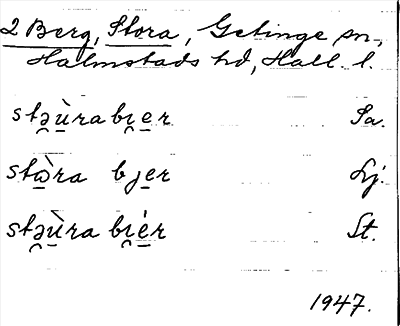 2 Berg, Stora, Getinge sn,
Halmstads hd, Hall. l.
stə̯ù̱ra bi̯e̱r Sa.
stὼ̱ra bje̱r Lj.
stə̯ù̱ra bi̯é̱r St.
1947.